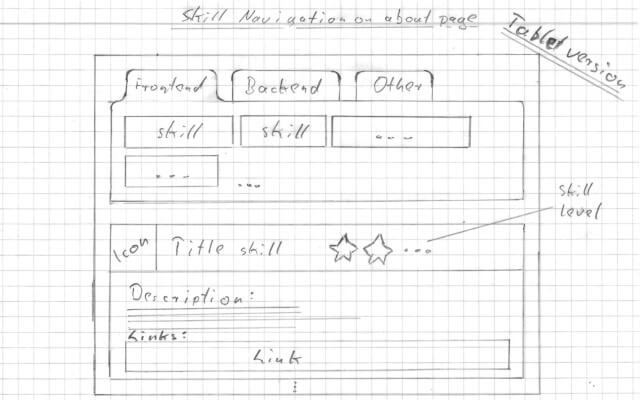 Skill Navigation on about page
Tablet version
Frontend Backend Other
skill skill ...
... ...
skill level
Icon Title skill ...
Description:
Links:
Link